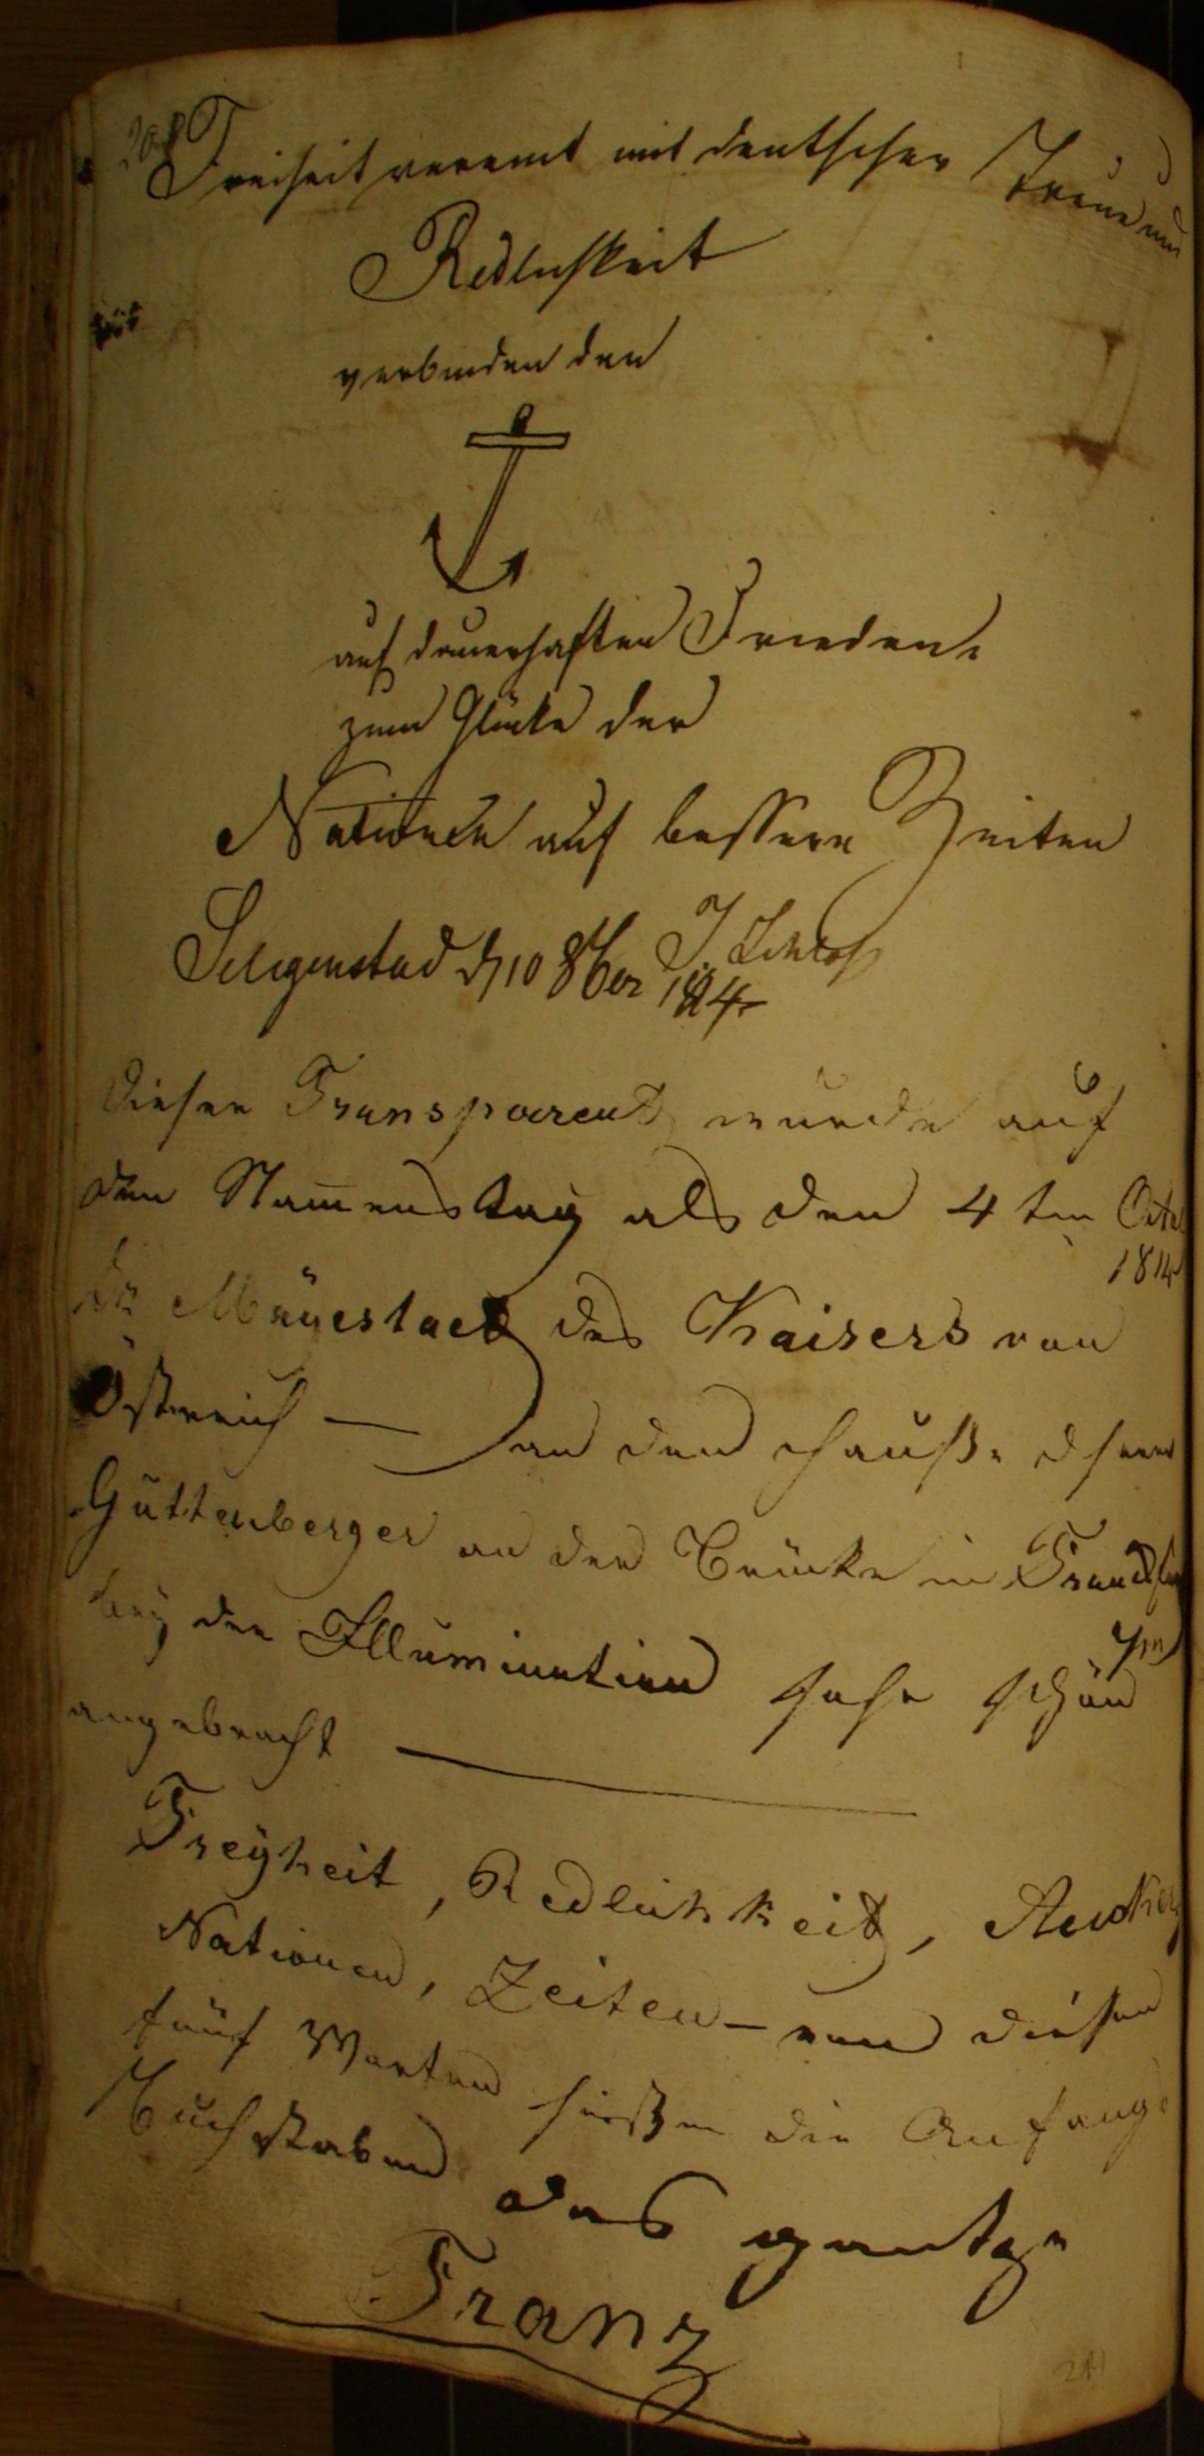 208
Freiheit vereint mit deutscher Treue und
Redlichkeit
verbinden den
auf dauerhaften Frieden
zum Glücke der
Nationen auf bessere Zeiten
J. Schloß
Seligenstad d 10 8ber 1814
Dieser Transparent wurde auf
den Nam̅enstag als den 4ten Octr
1814
Mayestaet des Kaisers von
Östreich — an dem Hauße d Herrn
Guttenberger an der Brücke in Franckfu
bey der Illumination sehr schön
angebracht —
Freyheit, Redlichkeit, Ancker,
Nationen, Zeiten — von diesen
fünf Worten hießen die Anfangs
Buchstaben das gantze
Franz
211